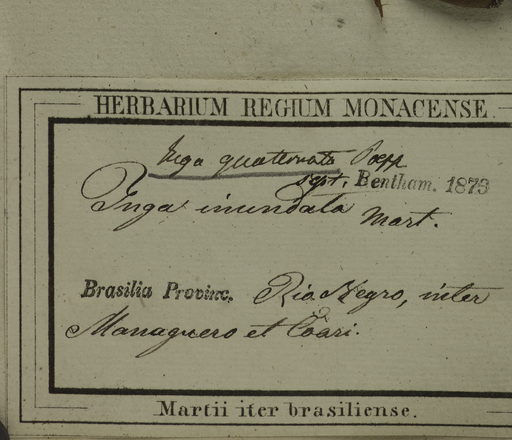 HERBARIUM REGIUM MONACENSE.
Inga quaternata Poepp
sept. Bentham. 1873
Inga inundata Mart.
Brasilia Provinc. Rio Negro, inter
Managuero et Coari.
Martii iter brasiliense.